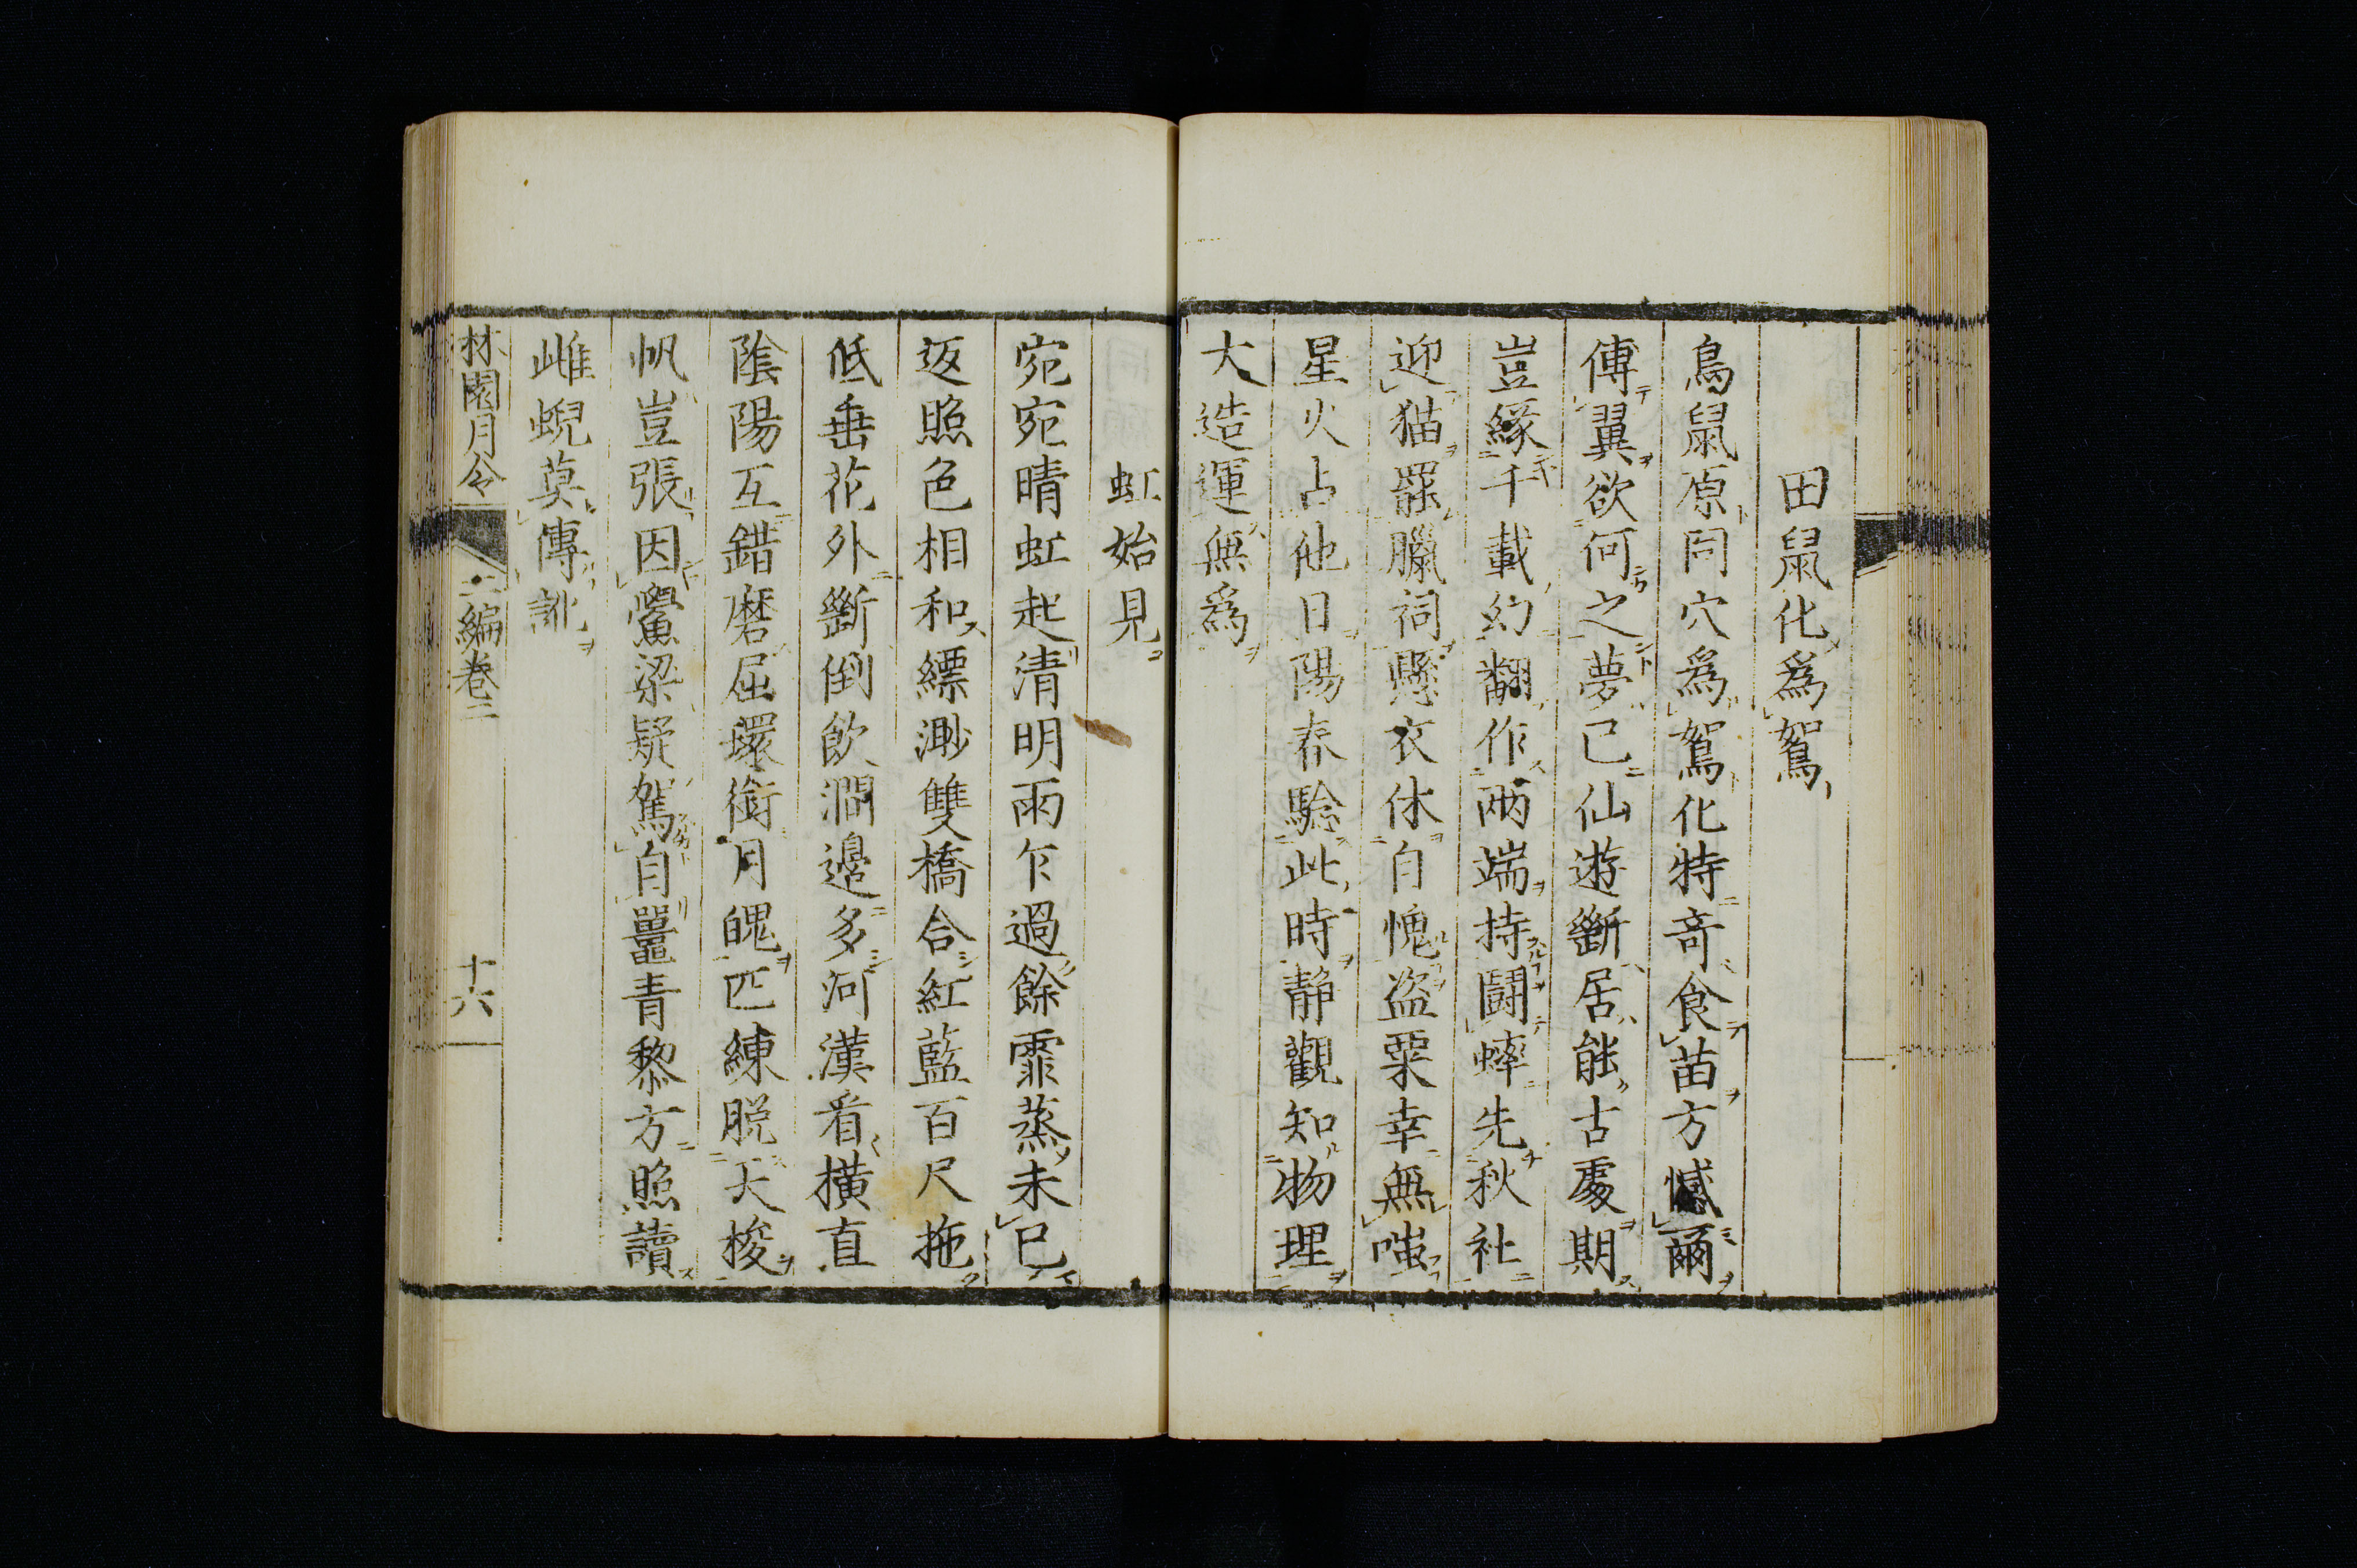 田鼠化爲鴽
鳥鼠原同穴爲鴽化特奇食苗方憾爾
傅翼欲何之夢已仙遊斷居能古處期
豈緣千載幻翻作兩端持鬪蟀先秋社
迎猫罷臘祠懸衣休自愧盗粟幸無嗤
星火占他日陽春驗此時靜觀知物理
大造運無爲
虹始見
宛宛晴虹起清明雨乍過餘霏蒸未已
返照色相和縹渺雙橋合紅藍百尺拖
低垂花外斷倒飲澗邊多河漢看橫直
陰陽互錯磨屈環銜月魄匹練脱天梭
帆豈張因鱟梁疑駕自鼉青藜方照讀
雌蜺莫傳訛
林園月令
六編卷二
十六